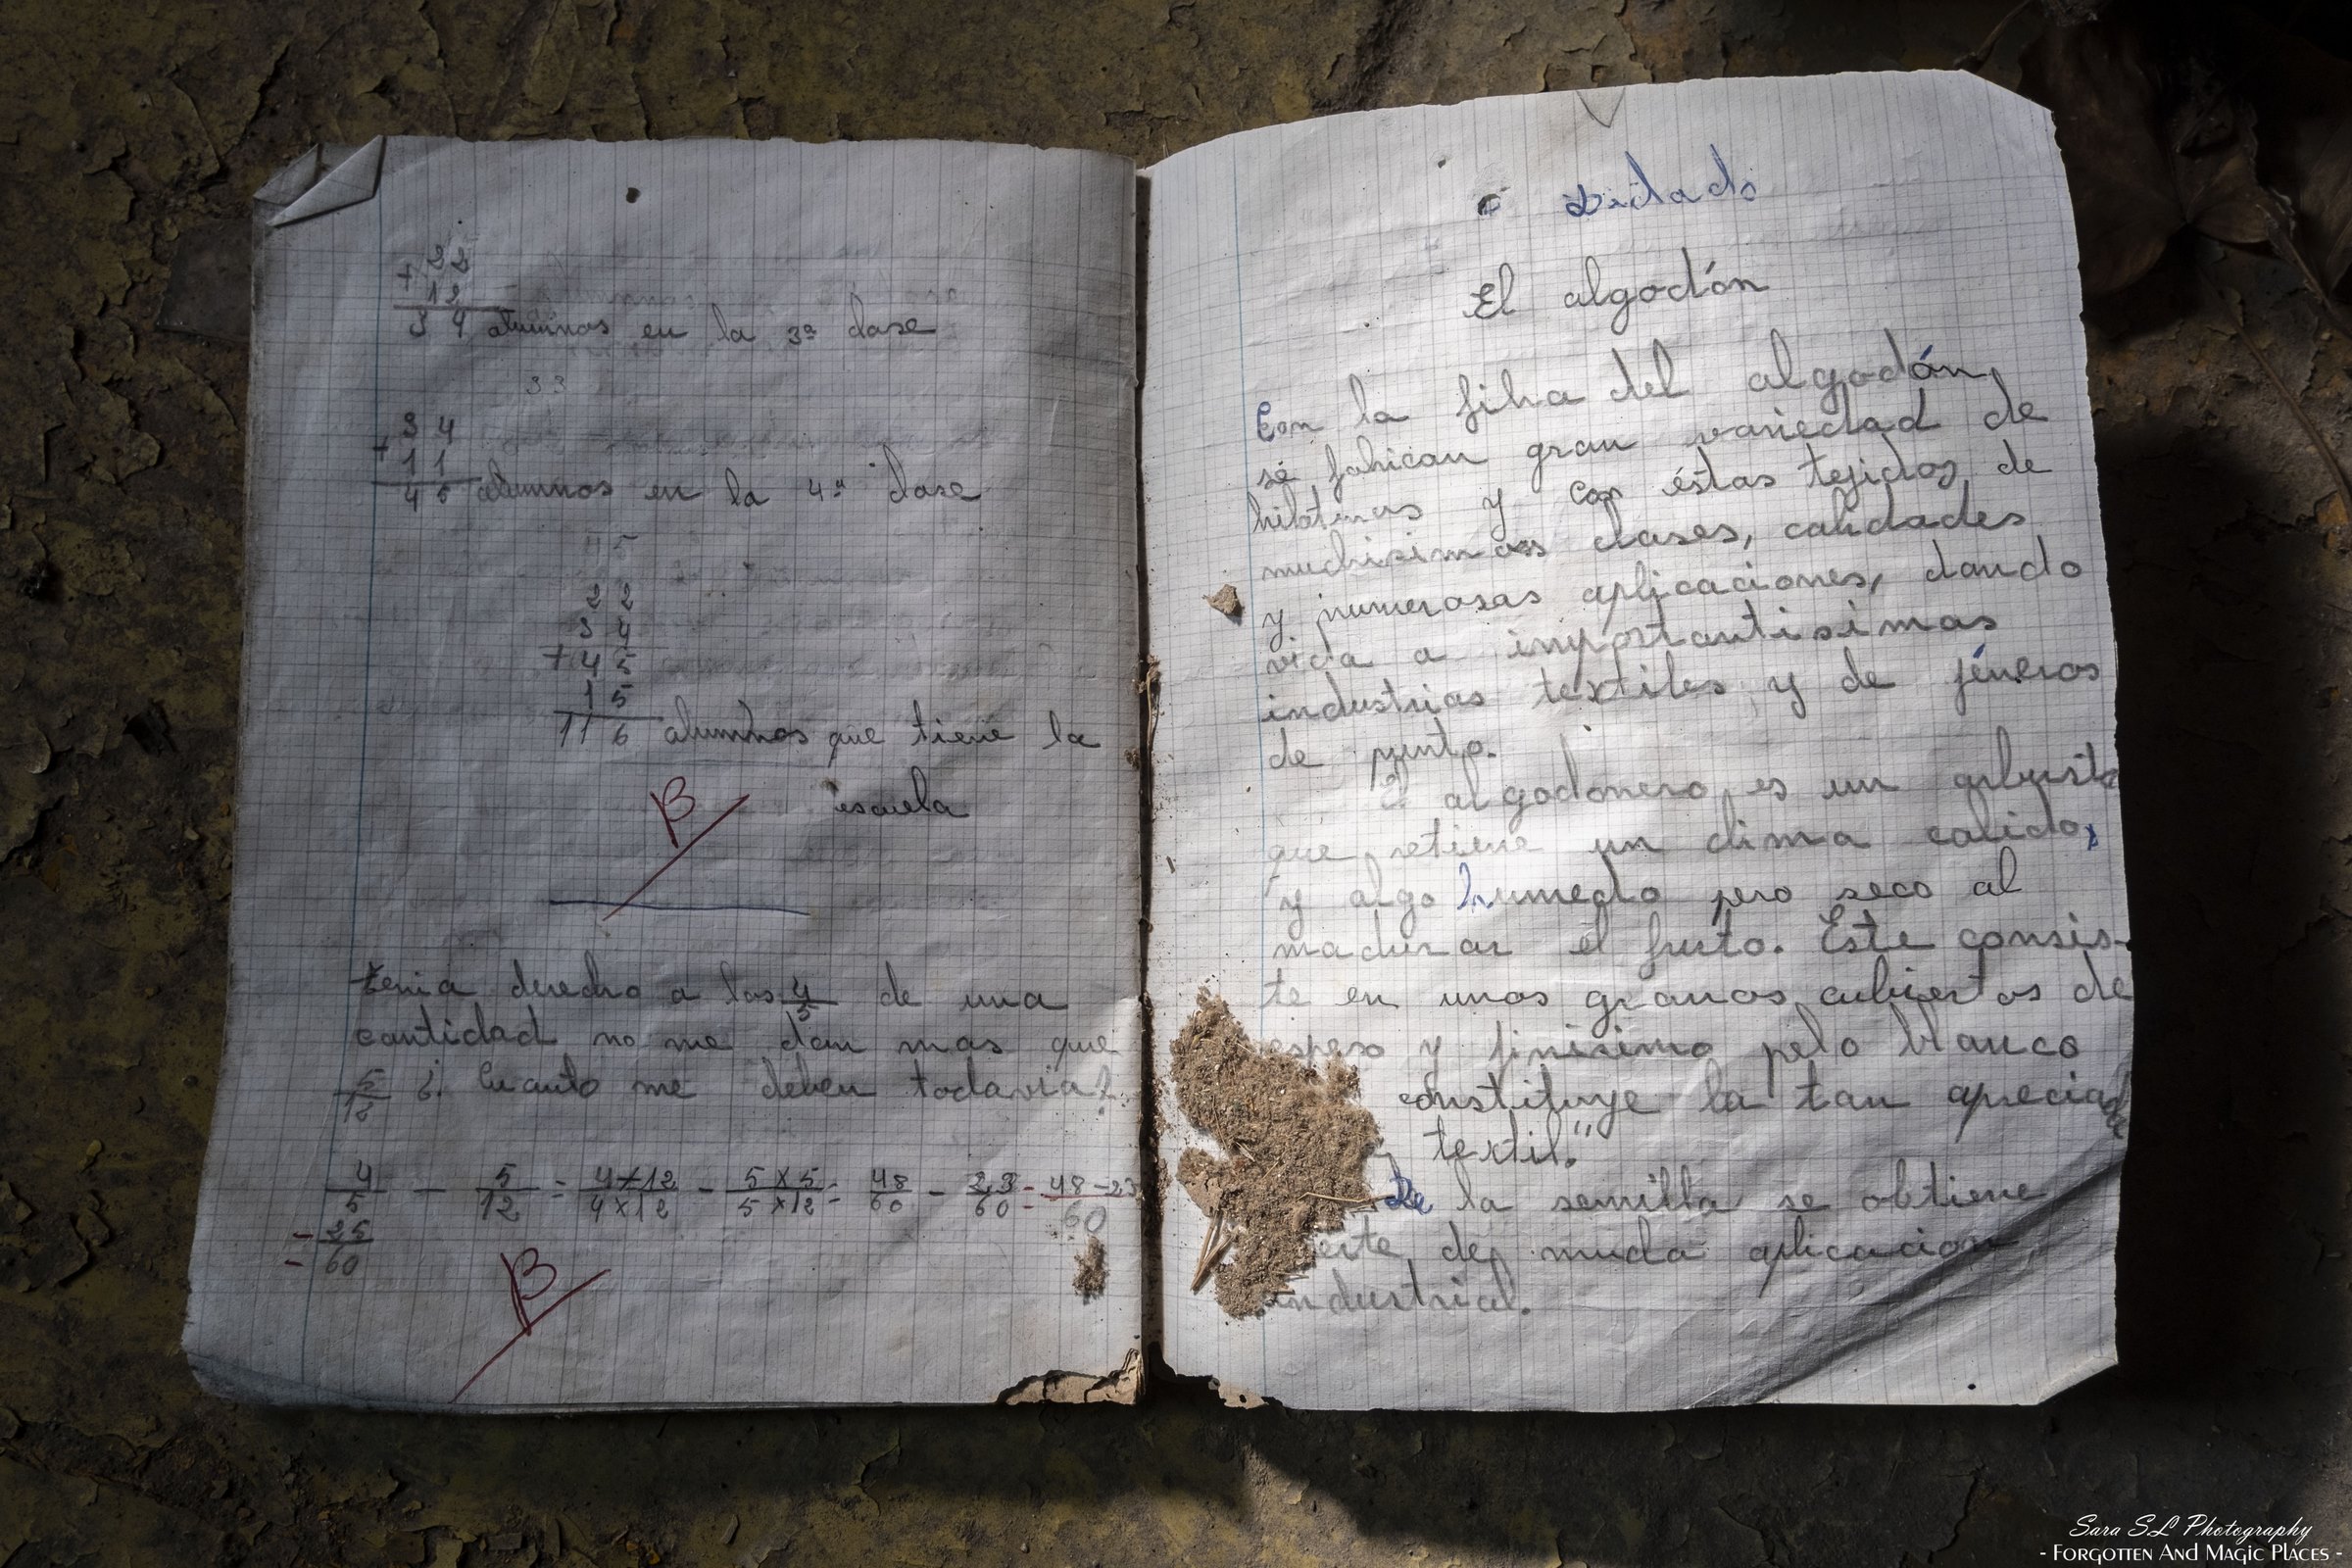 + 22
12
34 alumnos en la 3ª clase
33
34
+ 11
45 alumnos en la 4ª clase
45
22
34
+ 45
15
116 alumnos que tiene la
escuela
B
tenia derecho a las 4/5 de una
cantidad no me dan mas que
5/12 ¿. Cuanto me deben todavia?
4/5 - 5/12 = 4x12/4x12 - 5x5/5x12 = 48/60 - 23/60 = 48-23/60
= 25/60
B
Dictado
El algodón
Con la fibra del algodón,
se fabrican gran variedad de
hilaturas y con éstas tejidos, de
muchisimas clases, calidades
y numerosas aplicaciones, dando
vida a importantisimas
industrias textiles y de jéneros
de punto.
El algodonero, es un arbusto
que retiene un clima calido,
y algo humedo pero seco al
madurar el fruto. Este consis-
te en unos granos cubiertos de
espeso y finisimo pelo blanco
constituye la tan apreciada
textil."
De la semilla se obtiene
de mucha aplicacion
industrial.
Sara SL Photography
- Forgotten And Magic Places -